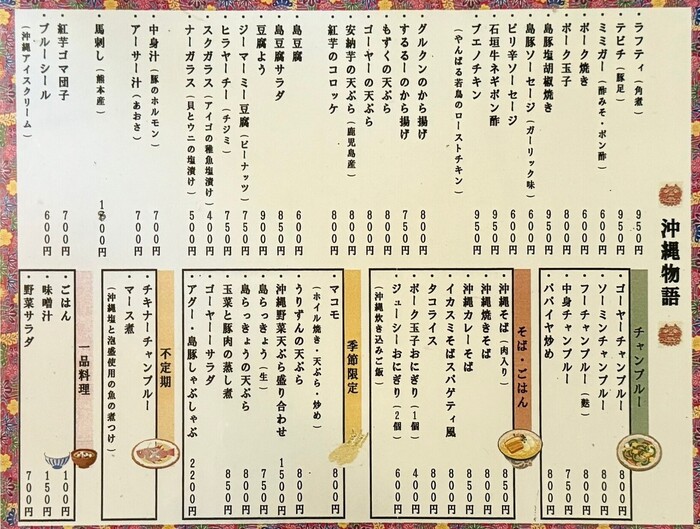 沖縄物語
・ラフティ(角煮) 950円
・テビチ(豚足) 950円
・ミミガー(酢みそ・ポン酢) 600円
・ポーク焼き 600円
・ポーク玉子 800円
・島豚塩胡椒焼き 950円
・島豚ソーセージ(ガーリック味) 600円
・ピリ辛ソーセージ 600円
・石垣牛ネギポン酢 950円
・ブエノチキン 950円
(やんばる若鳥のローストチキン)
・グルクンのから揚げ 800円
・するるーのから揚げ 750円
・もずくの天ぷら 800円
・ゴーヤーの天ぷら 800円
・安納芋の天ぷら(鹿児島産) 800円
・紅芋のコロッケ 800円
・島豆腐 600円
・島豆腐サラダ 850円
・豆腐よう 900円
・ジーマーミー豆腐(ピーナッツ) 750円
・ヒラヤーチー(チジミ) 750円
・スクガラス(アイゴの稚魚塩漬け) 400円
・ナーガラス(貝とウニの塩漬け) 500円
・中身汁(豚のホルモン) 700円
・アーサー汁(あおさ) 700円
・馬刺し(熊本産)
・紅芋ゴマ団子 700円
・ブルーシール 600円
(沖縄アイスクリーム)
チャンプルー
・ゴーヤーチャンプルー 800円
・ソーミンチャンプルー 800円
・フーチャンプルー(麩) 800円
・中身チャンプルー 750円
・パパイヤ炒め 800円
そば・ごはん
・沖縄そば(肉入り) 850円
・沖縄焼きそば 800円
・沖縄カレーそば 800円
・イカスミそばスパゲティ風 850円
・タコライス 800円
・ポーク玉子おにぎり(1個) 400円
・ジューシーおにぎり(2個) 600円
(沖縄炊き込みご飯)
季節限定
・マコモ 800円
(ホイル焼き・天ぷら・炒め)
・うりずんの天ぷら 800円
・沖縄野菜天ぷら盛り合わせ 1500円
・島らっきょう(生) 750円
・島らっきょうの天ぷら 800円
・玉菜と豚肉の蒸し煮 850円
・ゴーヤーサラダ 800円
・アグー・島豚しゃぶしゃぶ 2200円
不定期
・チキナーチャンプルー
・マース煮
(沖縄塩と泡盛使用の魚の煮つけ)
一品料理
・ごはん 100円
・味噌汁 150円
・野菜サラダ 700円